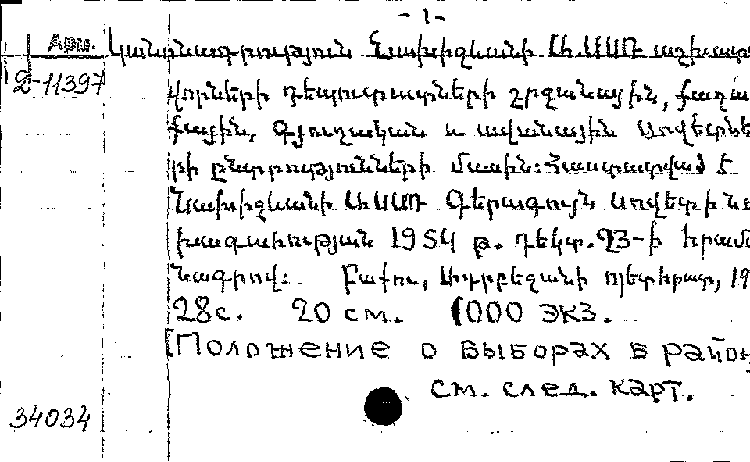 - 1 -
Арм. Կանոնադրություն Նախիջևանի ԱՍՍՌ աշխատ
2-11397 վորների դեպուտատների շրջանային, քաղա
քային, գյուղական և ավանային Սովետնե
րի ընտրությունների մասին: Հաստատված է
Նախիջևանի ԱՍՍՌ Գերագույն Սովետի նա
խագահության 1954 թ. դեկտ. 23-ի հրամ
նագրով: Բաքու, Ադրբեջանի պետհրատ, 19
28 с. 20 см. 1000 экз.
[Положение о выборах в район
см. след. карт.
34034